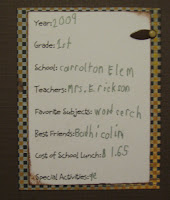 Year: 2009
Grade: 1st
School: carrolton Elem
Teachers: Mrs. Erickson
Favorite Subjects: wont cerch
Best Friends: Bodhi colin
Cost of School Lunch: $ 1.65
Special Activities: